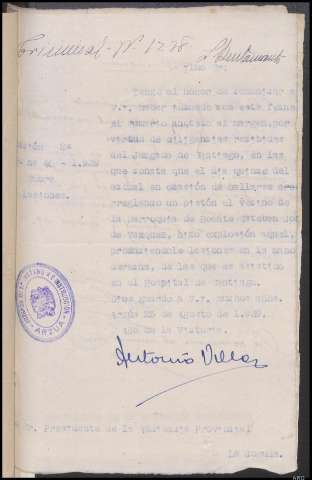 Criminal - Nº 1238
Tengo el honor de comunicar a
V.I. haber
el sumario anotado al margen, por
virtud de diligencias recibidas
del Juzgado de Santiago, en las
que consta que el día quince del
actual en ocasión de hallarse arre
glando un pistón el vecino de
la parroquia de Boente Esteban
de Vazquez, hizo explosión aquel,
produciendole lesiones en la mano
derecha, de las que es asistido
en el Hospital de Santiago.
Dios guarde a V.I. muchos años.
Arzúa 25 de Agosto de 1.939.
Año de la Victoria.
1.939
Lesiones.
ARZUA
Antonio Villar
Sr. Presidente de la Audiencia Provincial
La Coruña.